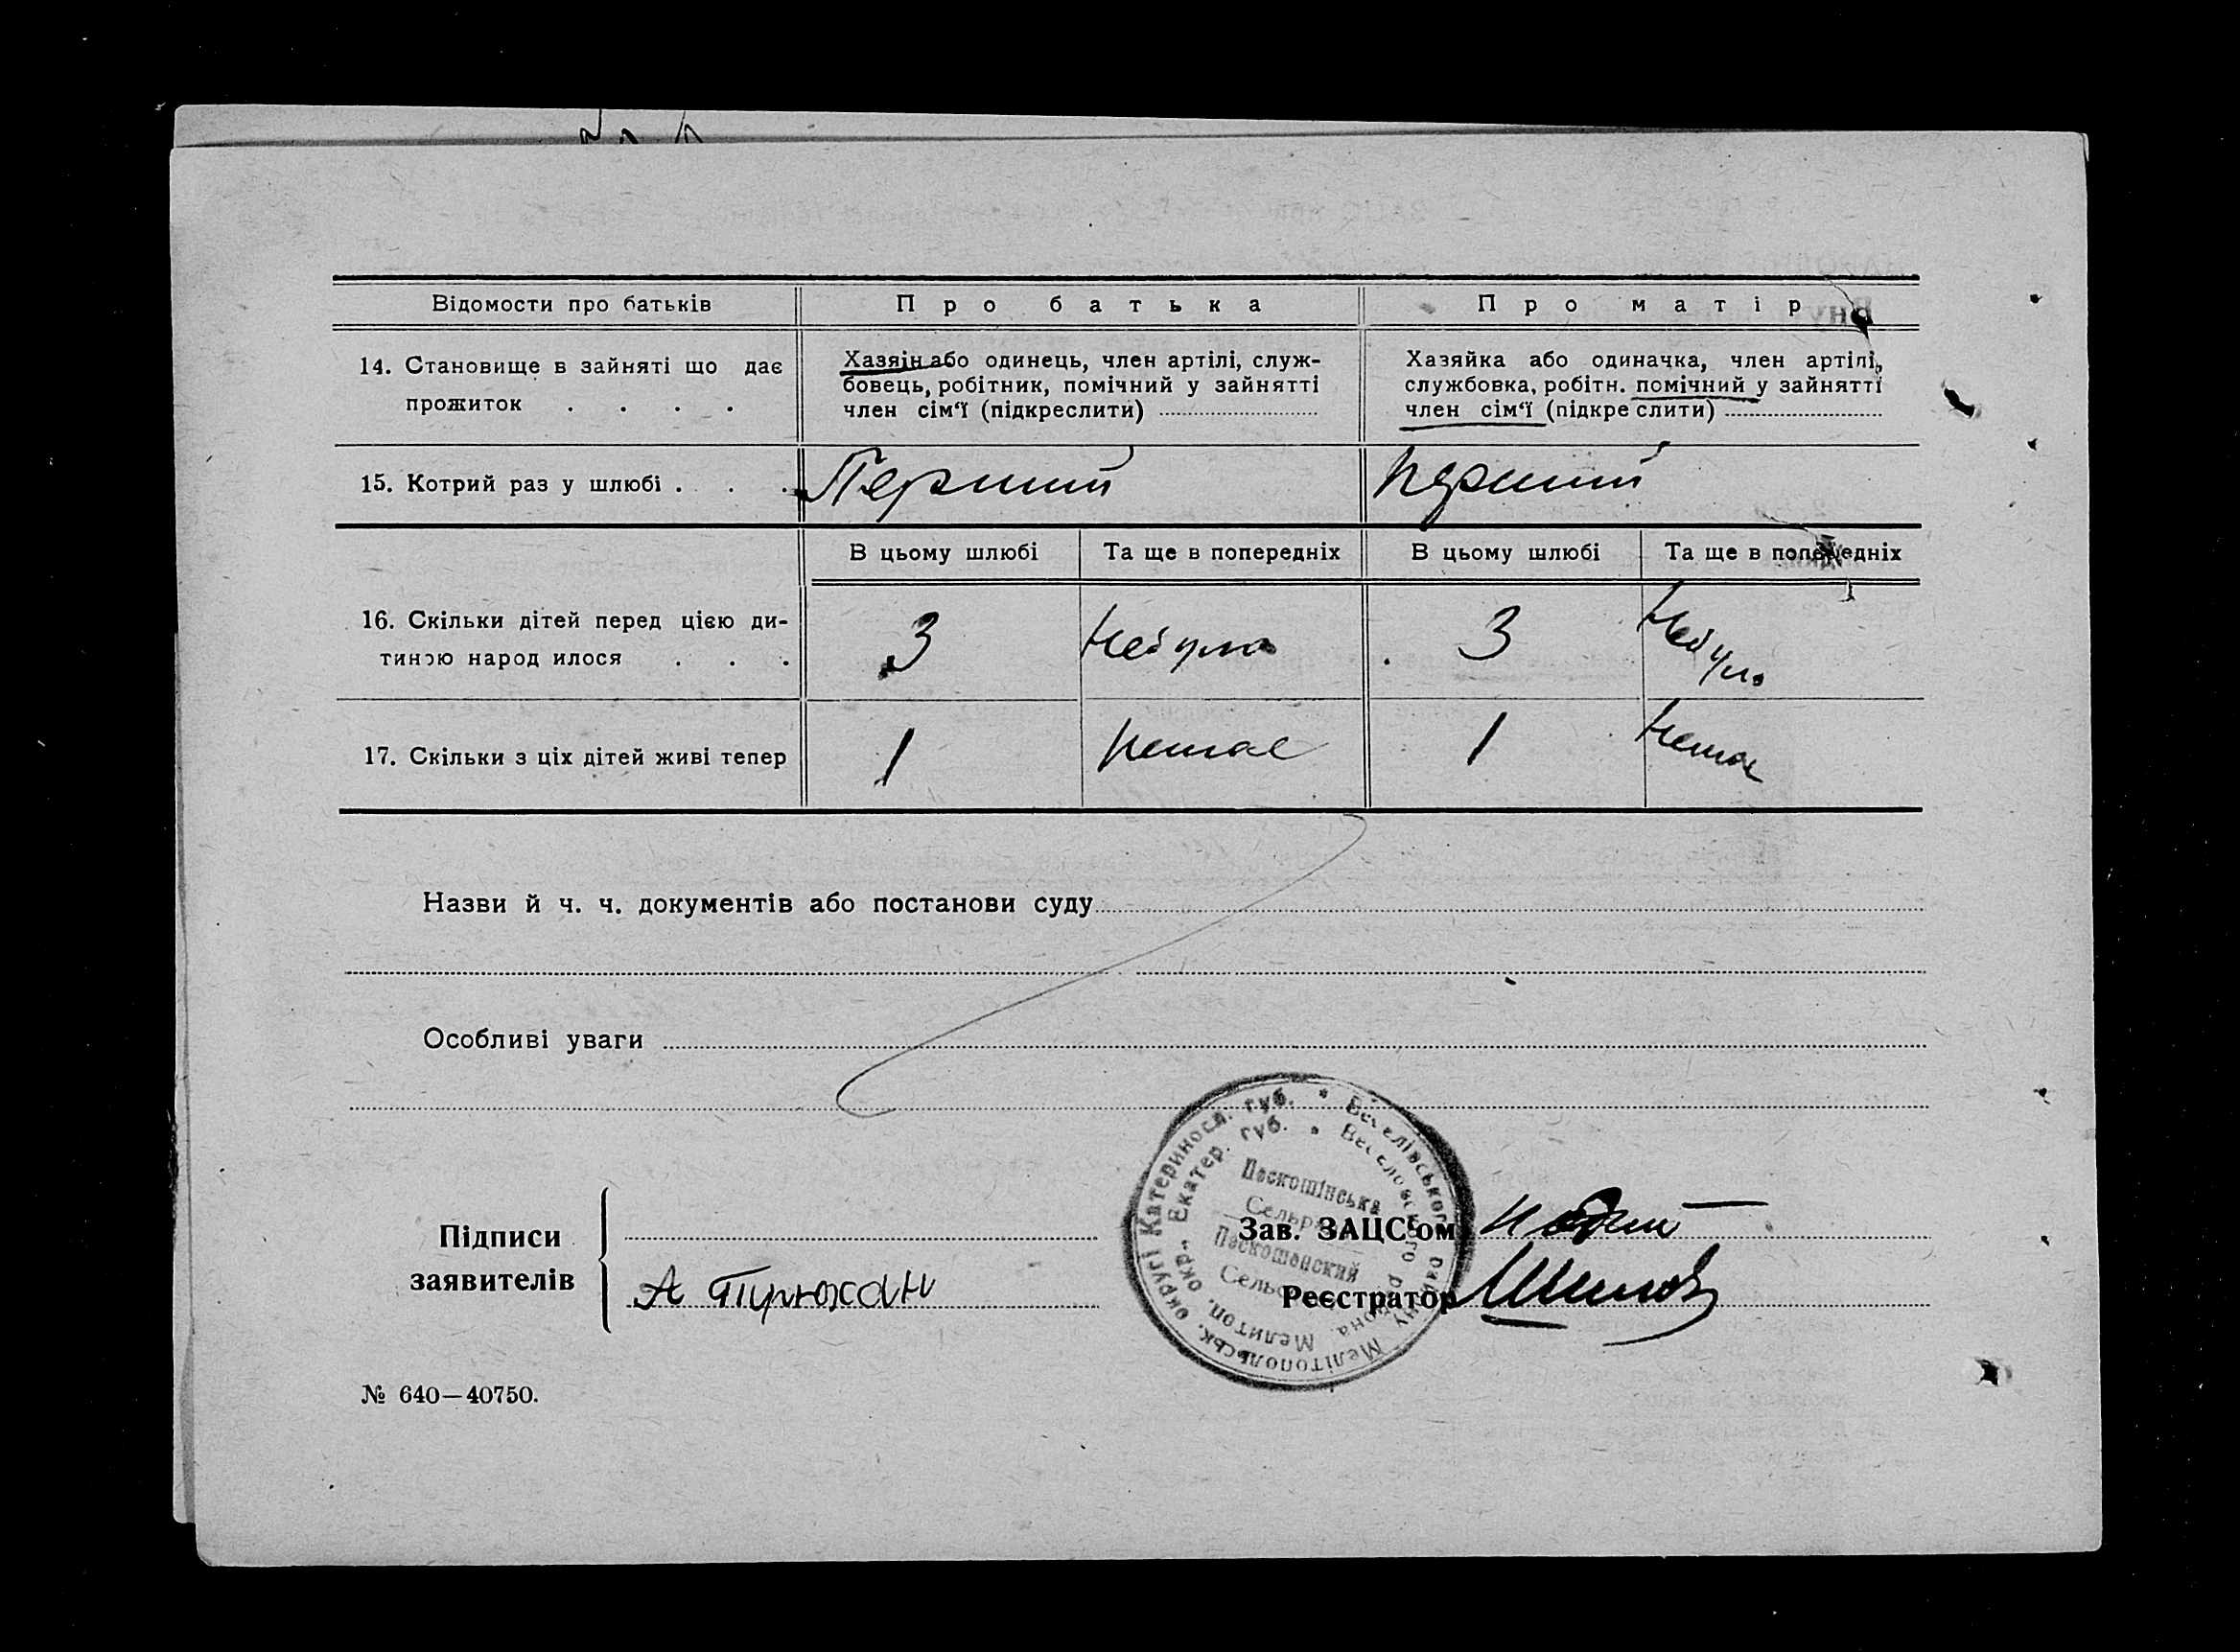 Відомости про батьків
Про батька
Про матір
14. Становище в зайняті що дає
прожиток . . . .
Хазяін або одинець, член артілі, служ-
бовець, робітник, помічний у зайнятті
член сім‘ї (підкреслити)
Хазяйка або одиначка, член артілі,
службовка, робітн. помічний у зайнятті
член сім‘ї (підкре слити)
15. Котрий раз у шлюбі . . .
Перший
перший
В цьому шлюбі
Та ще в попередніх
В цьому шлюбі
Та ще в попередніх
16. Скільки дітей перед цією ди-
тиною народ илося . . .
3
Небуло
3
Небуло
17. Скільки з ціх дітей живі тепер
1
Немає
1
Немає
Назви й ч. ч. документів або постанови суду
Особливі уваги
Підписи
заявителів
А
Зав. ЗАЦС‘ом
Реєстратор
Мелітопольськ. округі Катериносл. губ. • Веселівського району
Мелитоп. окр., Екатер. губ. • Веселовского района
№ 640—40750.